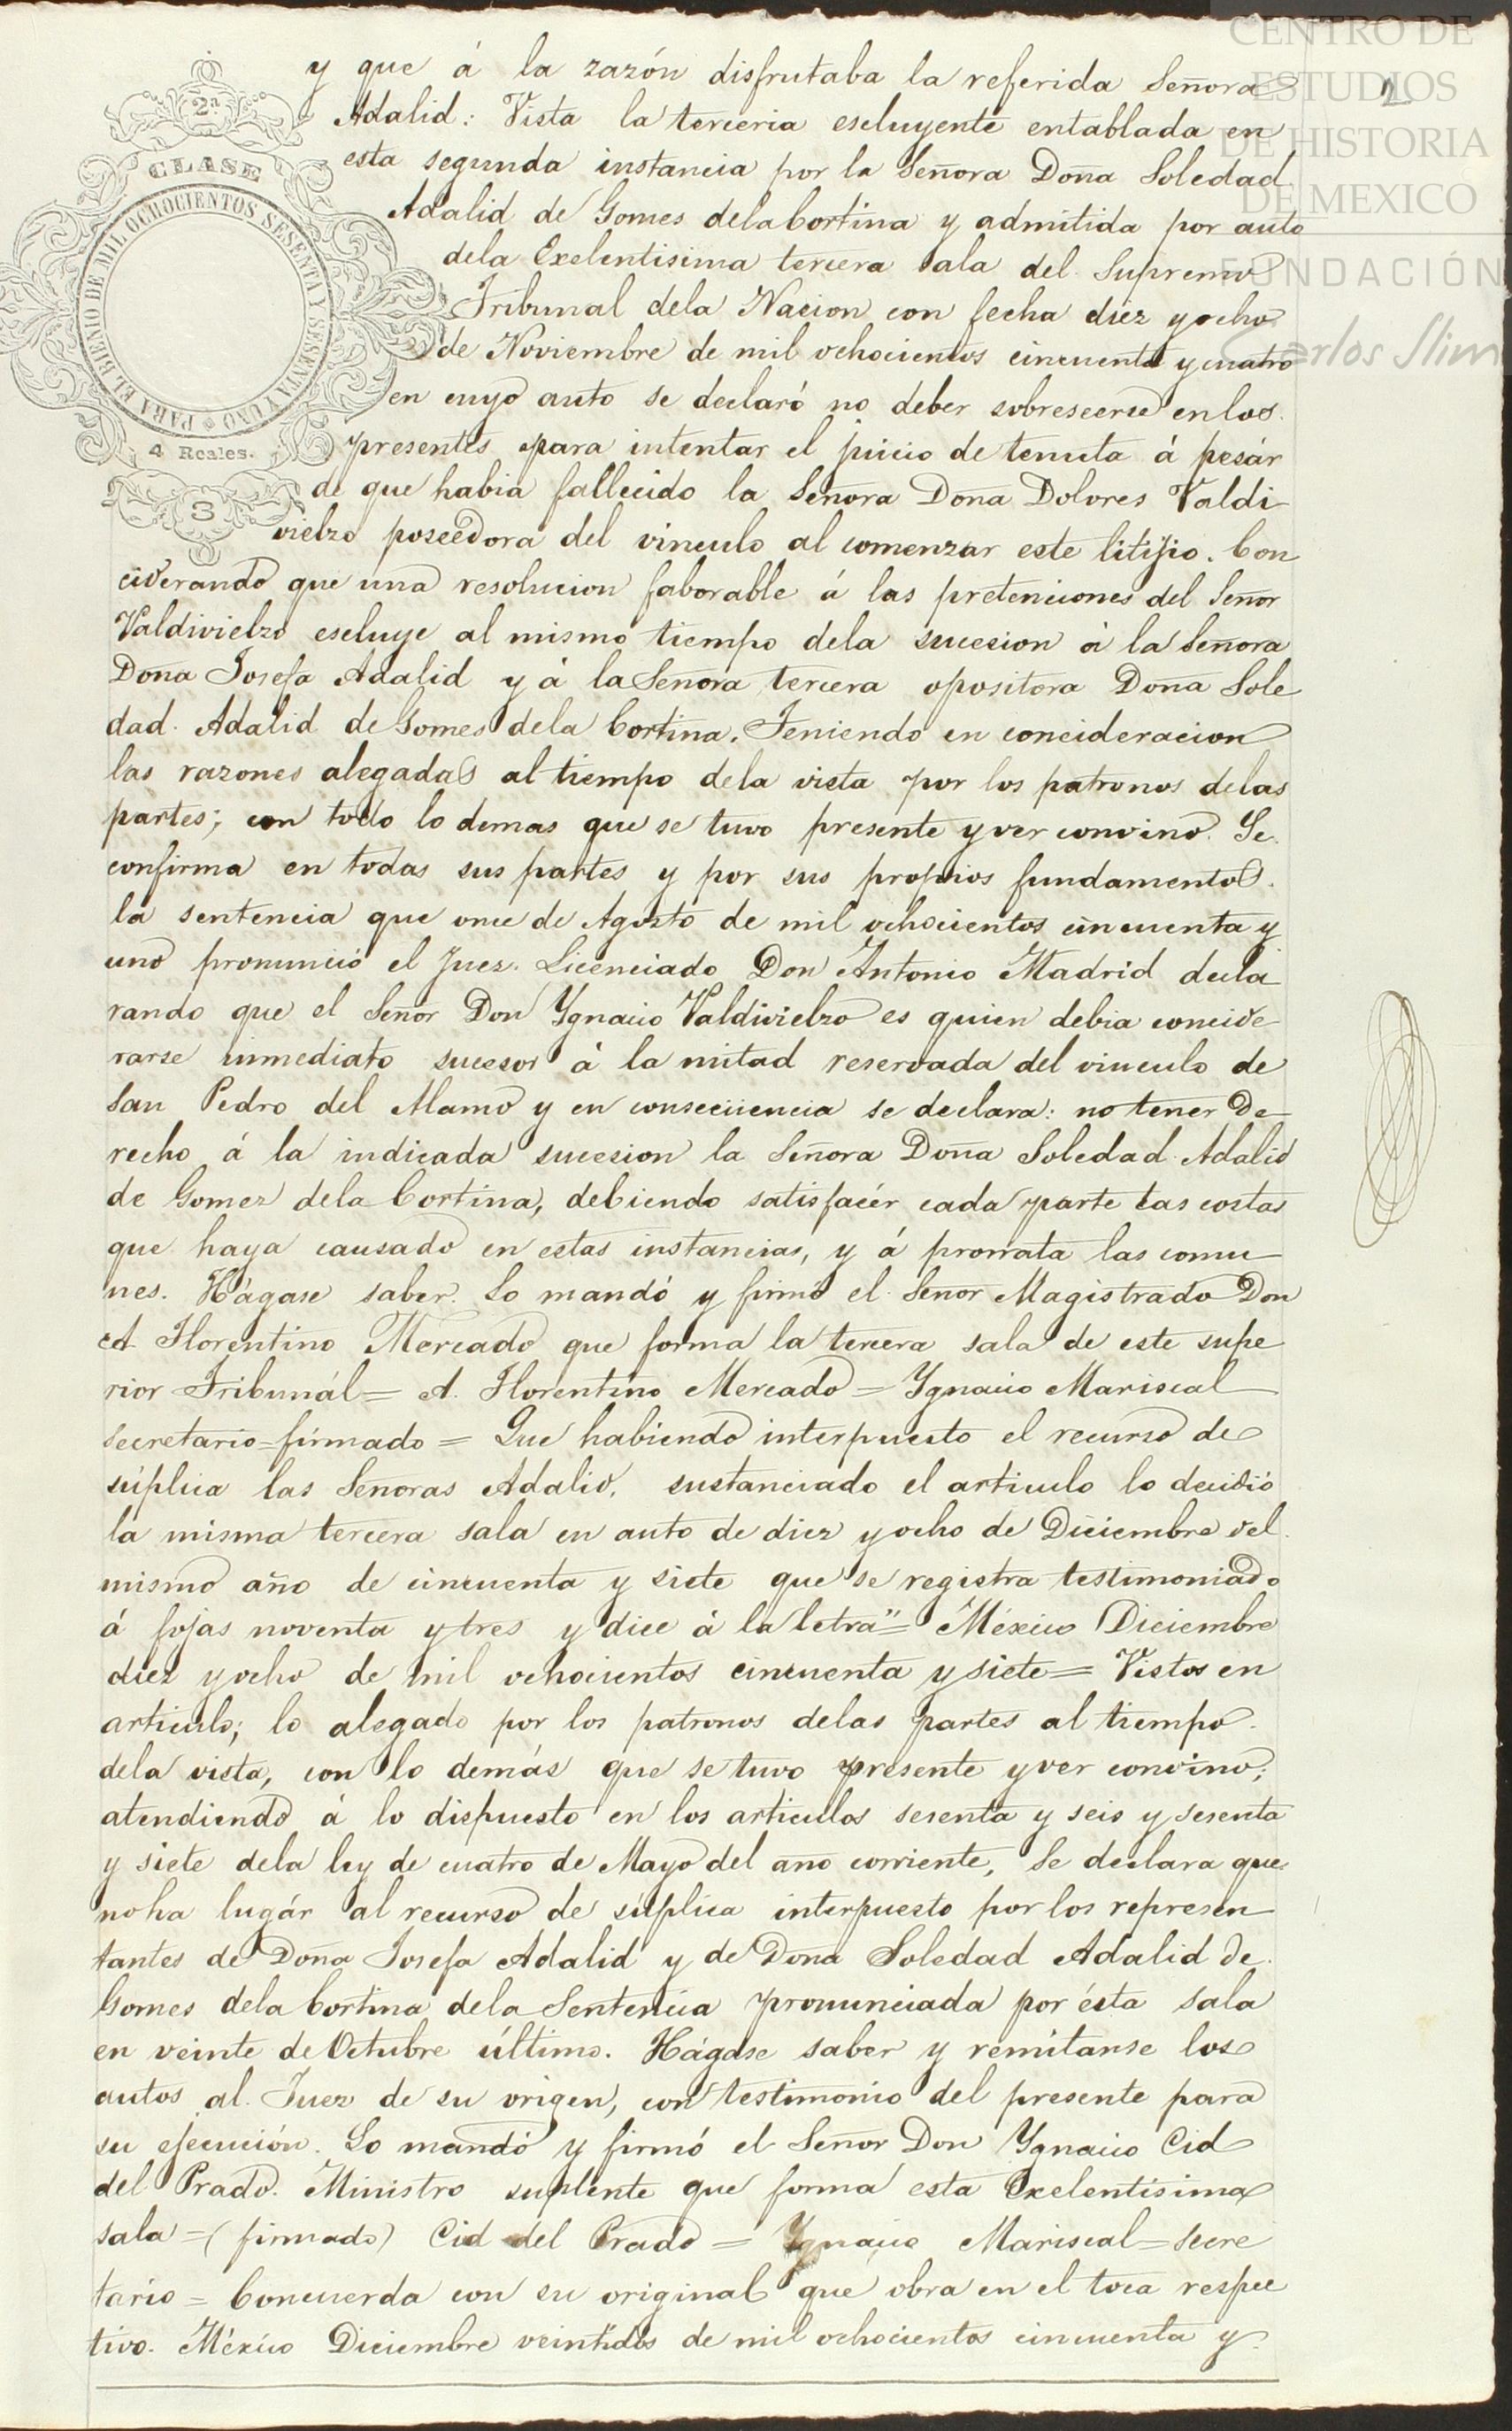 CENTRO DE
ESTUDIOS
DE HISTORIA
DE MEXICO
FUNDACIÓN
Carlos Slim
2
2a
CLASE
PARA EL BIENIO DE MIL OCHOCIENTOS SESENTA Y SESENTA Y UNO
4 Reales.
3
y que á la razón disfrutaba la referida Señora
Adalid: Vista la terceria escluyente entablada en
esta segunda instancia por la Señora Doña Soledad
Adalid de Gomes dela Cortina y admitida por auto
dela Exelentisima tercera sala del Supremo
Tribunal dela Nacion con fecha diez y ocho
de Noviembre de mil ochocientos cincuenta y cuatro
en cuyo auto se declaró no deber sobreseerse en los
presentes para intentar el juicio de tenuta á pesár
de que habia fallecido la Señora Doña Dolores Valdi
vielzo poseedora del vinculo al comenzar este litijio. Con
ciderando que una resolucion faborable á las pretenciones del Señor
Valdivielzo escluye al mismo tiempo dela sucesion á la Señora
Doña Josefa Adalid y á la Señora tercera opositora Doña Sole
dad Adalid de Gomes dela Cortina. Teniendo en concideracion
las razones alegadas al tiempo dela vista por los patronos delas
partes; con todo lo demas que se tuvo presente y ver convino. Se
confirma en todas sus partes y por sus propios fundamentos
la sentencia que once de Agosto de mil ochocientos cincuenta y
uno pronunció el Juez Licenciado Don Antonio Madrid decla
rando que el Señor Don Ygnacio Valdivielzo es quien debia concide
rarse inmediato sucesor á la mitad reservada del vinculo de
San Pedro del Alamo y en consecuencia se declara: no tener de
recho á la indicada sucesion la Señora Doña Soledad Adalid
de Gomez dela Cortina, debiendo satisfacér cada parte las costas
que haya causado en estas instancias, y á prorrata las comu
nes. Hágase saber. Lo mandó y firmó el Señor Magistrado Don
A Florentino Mercado que forma la tercera sala de este supe
rior Tribunál = A. Florentino Mercado = Ygnacio Mariscal
secretario = firmado = Que habiendo interpuesto el recurso de
súplica las Señoras Adalid, sustanciado el articulo lo decidió
la misma tercera sala en auto de diez y ocho de Diciembre del
mismo año de cincuenta y siete que se registra testimoniado
á fojas noventa y tres y dice á la letra" = México Diciembre
diez y ocho de mil ochocientos cincuenta y siete = Vistos en
articulo; lo alegado por los patronos delas partes al tiempo
dela vista, con lo demás que se tuvo presente y ver convino;
atendiendo á lo dispuesto en los articulos sesenta y seis y sesenta
y siete dela ley de cuatro de Mayo del ano corriente, Se declara que
no ha lugár al recurso de súplica interpuesto por los represen
tantes de Doña Josefa Adalid y de Doña Soledad Adalid de
Gomes dela Cortina dela Sentencia pronunciada por ésta sala
en veinte de Octubre último. Hágase saber y remítanse los
autos al Juez de su origen, con testimonio del presente para
su ejecución. Lo mandó y firmó el Señor Don Ygnacio Cid
del Prado. Ministro suplente que forma esta Exelentísima
sala = (firmado) Cid del Prado = Ygnacio Mariscal = Secre
tario = Concuerda con su original que obra en el toca respec
tivo. México Diciembre veintidos de mil ochocientos cincuenta y